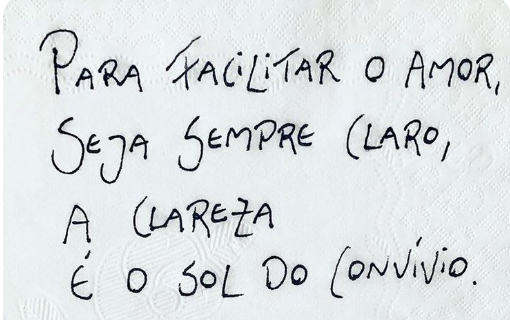 PARA FACILITAR O AMOR,
SEJA SEMPRE CLARO,
A CLAREZA
É O SOL DO CONVÍVIO.